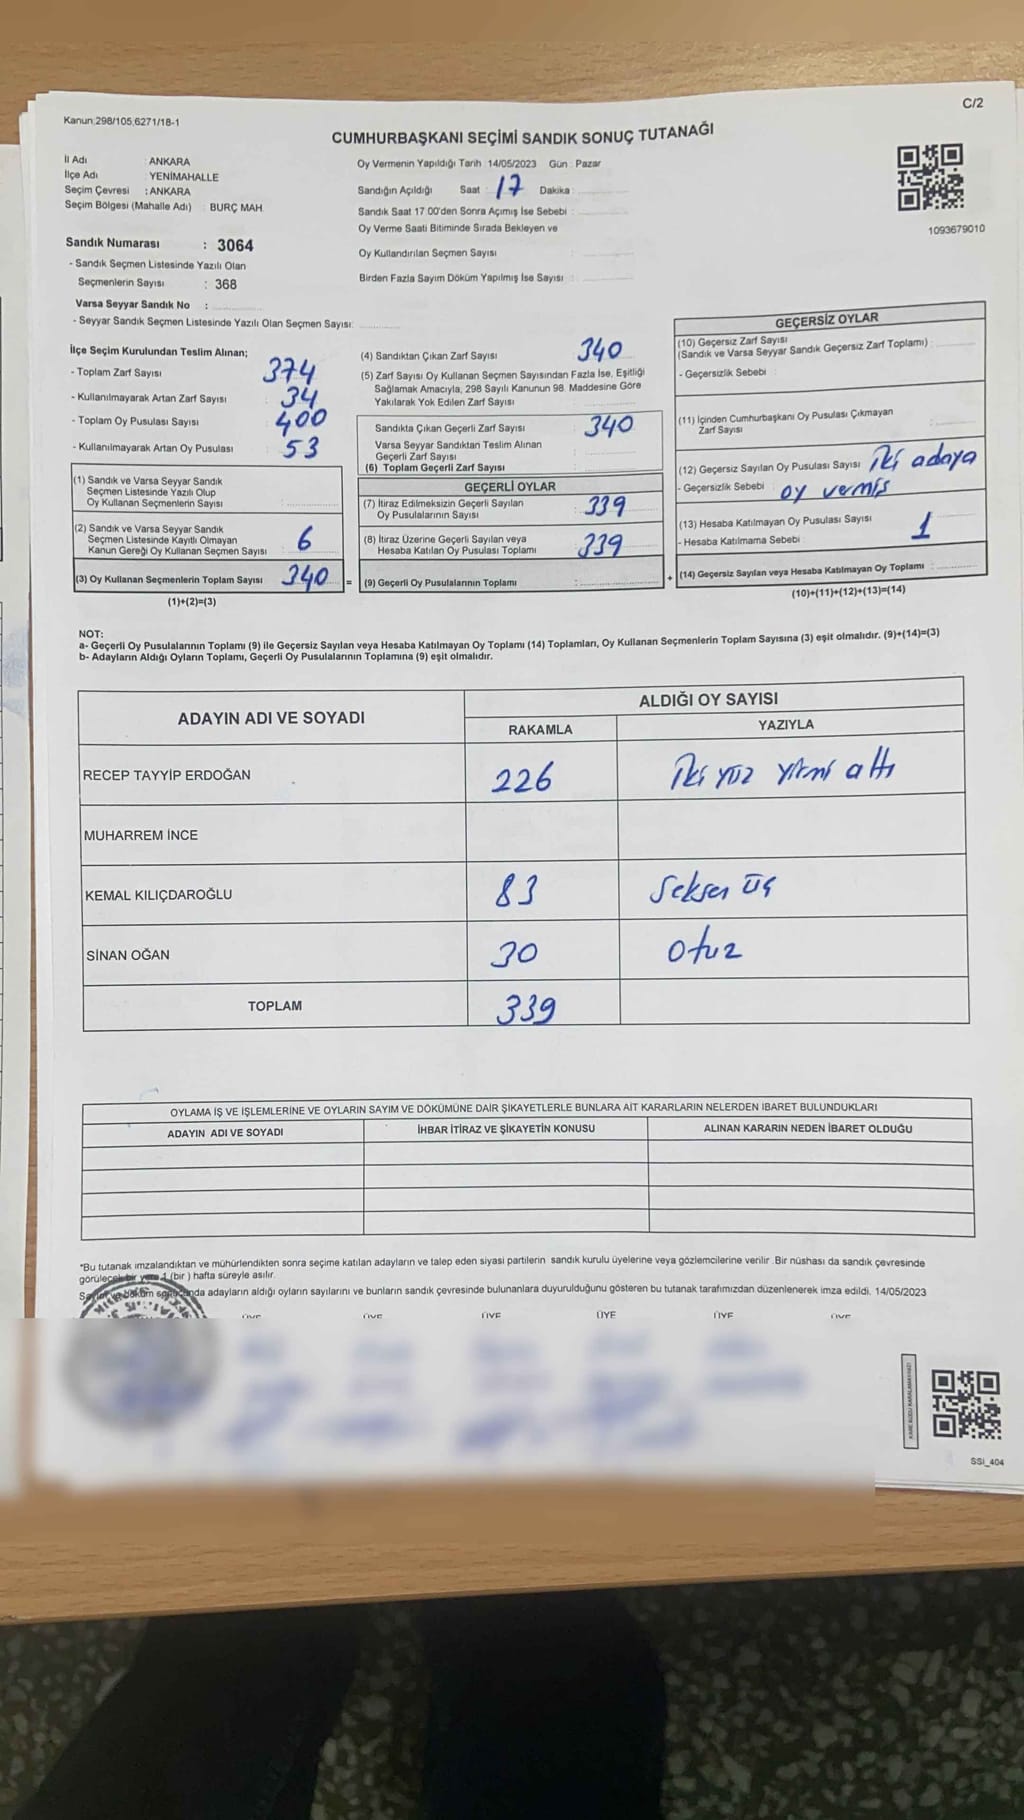 C/2
Kanun:298/105,6271/18-1
CUMHURBAŞKANI SEÇİMİ SANDIK SONUÇ TUTANAĞI
İl Adı ANKARA
İlçe Adı YENİMAHALLE
Seçim Çevresi : ANKARA
Seçim Bölgesi (Mahalle Adı) BURÇ MAH.
Oy Vermenin Yapıldığı Tarih :14/05/2023 Gün : Pazar
Sandığın Açıldığı Saat : 17 Dakika :
Sandık Saat 17:00'den Sonra Açımış İse Sebebi :
Oy Verme Saati Bitiminde Sırada Bekleyen ve
Oy Kullandırılan Seçmen Sayısı
Birden Fazla Sayım Döküm Yapılmış İse Sayısı :
1093679010
Sandık Numarası : 3064
- Sandık Seçmen Listesinde Yazılı Olan
Seçmenlerin Sayısı : 368
Varsa Seyyar Sandık No :
- Seyyar Sandık Seçmen Listesinde Yazılı Olan Seçmen Sayısı:
İlçe Seçim Kurulundan Teslim Alınan;
- Toplam Zarf Sayısı 374
- Kullanılmayarak Artan Zarf Sayısı : 34
- Toplam Oy Pusulası Sayısı : 400
- Kullanılmayarak Artan Oy Pusulası : 53
(1) Sandık ve Varsa Seyyar Sandık
Seçmen Listesinde Yazılı Olup
Oy Kullanan Seçmenlerin Sayısı
(2) Sandık ve Varsa Seyyar Sandık
Seçmen Listesinde Kayıtlı Olmayan
Kanun Gereği Oy Kullanan Seçmen Sayısı : 6
(3) Oy Kullanan Seçmenlerin Toplam Sayısı 340 =
(1)+(2)=(3)
(4) Sandıktan Çıkan Zarf Sayısı 340
(5) Zarf Sayısı Oy Kullanan Seçmen Sayısından Fazla İse, Eşitliği
Sağlamak Amacıyla, 298 Sayılı Kanunun 98. Maddesine Göre
Yakılarak Yok Edilen Zarf Sayısı
Sandıkta Çıkan Geçerli Zarf Sayısı : 340
Varsa Seyyar Sandıktan Teslim Alınan
Geçerli Zarf Sayısı
(6) Toplam Geçerli Zarf Sayısı
GEÇERLİ OYLAR
(7) İtiraz Edilmeksizin Geçerli Sayılan
Oy Pusulalarının Sayısı 339
(8) İtiraz Üzerine Geçerli Sayılan veya
Hesaba Katılan Oy Pusulası Toplamı 339
(9) Geçerli Oy Pusulalarının Toplamı : +
GEÇERSİZ OYLAR
(10) Geçersiz Zarf Sayısı
(Sandık ve Varsa Seyyar Sandık Geçersiz Zarf Toplamı) :
- Geçersizlik Sebebi :
(11) İçinden Cumhurbaşkanı Oy Pusulası Çıkmayan
Zarf Sayısı
(12) Geçersiz Sayılan Oy Pusulası Sayısı iki adaya
- Geçersizlik Sebebi : oy vermiş
(13) Hesaba Katılmayan Oy Pusulası Sayısı 1
- Hesaba Katılmama Sebebi :
(14) Geçersiz Sayılan veya Hesaba Katılmayan Oy Toplamı :
(10)+(11)+(12)+(13)=(14)
NOT:
a- Geçerli Oy Pusulalarının Toplamı (9) ile Geçersiz Sayılan veya Hesaba Katılmayan Oy Toplamı (14) Toplamları, Oy Kullanan Seçmenlerin Toplam Sayısına (3) eşit olmalıdır. (9)+(14)=(3)
b- Adayların Aldığı Oyların Toplamı, Geçerli Oy Pusulalarının Toplamına (9) eşit olmalıdır.
ADAYIN ADI VE SOYADI ALDIĞI OY SAYISI
RAKAMLA YAZIYLA
RECEP TAYYİP ERDOĞAN 226 İki yüz yirmi altı
MUHARREM İNCE
KEMAL KILIÇDAROĞLU 83 Seksen üç
SİNAN OĞAN 30 Otuz
TOPLAM 339
OYLAMA İŞ VE İŞLEMLERİNE VE OYLARIN SAYIM VE DÖKÜMÜNE DAİR ŞİKAYETLERLE BUNLARA AİT KARARLARIN NELERDEN İBARET BULUNDUKLARI
ADAYIN ADI VE SOYADI İHBAR İTİRAZ VE ŞİKAYETİN KONUSU ALINAN KARARIN NEDEN İBARET OLDUĞU
*Bu tutanak imzalandıktan ve mühürlendikten sonra seçime katılan adayların ve talep eden siyasi partilerin sandık kurulu üyelerine veya gözlemcilerine verilir. Bir nüshası da sandık çevresinde
görülecek bir yere 1 (bir ) hafta süreyle asılır.
Sayım ve döküm sonucunda adayların aldığı oyların sayılarını ve bunların sandık çevresinde bulunanlara duyurulduğunu gösteren bu tutanak tarafımızdan düzenlenerek imza edildi. 14/05/2023
ÜYE ÜYE ÜYE ÜYE ÜYE ÜYE
SSI_404